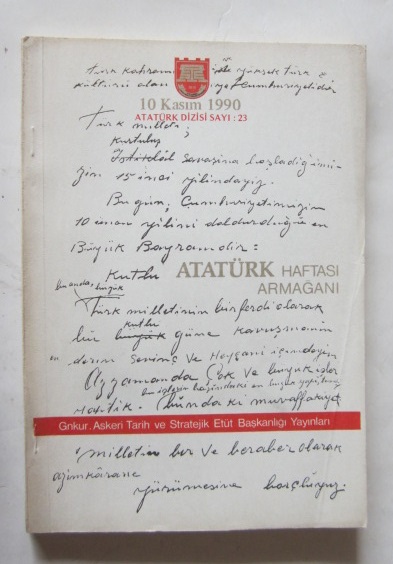 Türk kahraman yüksek Türk
kültürü olan Cumhuriyetidir
10 Kasım 1990
ATATÜRK DİZİSİ SAYI : 23
Türk milleti;
Kurtuluş
İstiklâl savaşına başladığımı-
zın 15 inci yılındayız.
Bugün; Cumhuriyetimizin
10 uncu yılını doldurduğu en
Büyük Bayramdır:
Kutlu
ATATÜRK HAFTASI
ARMAĞANI
bu anda, büyük
Türk milletinin bir ferdi olarak
kutlu
bu büyük güne kavuşmanın
en derin sevinç ve heyecanı içindeyim
Az zamanda çok ve büyük işler
bu işlerin en büyük
yaptık. Bundaki muvaffakiyeti
Gnkur. Askeri Tarih ve Stratejik Etüt Başkanlığı Yayınları
milletin bir ve beraber olarak
azimkârane
yürümesine borçluyuz.